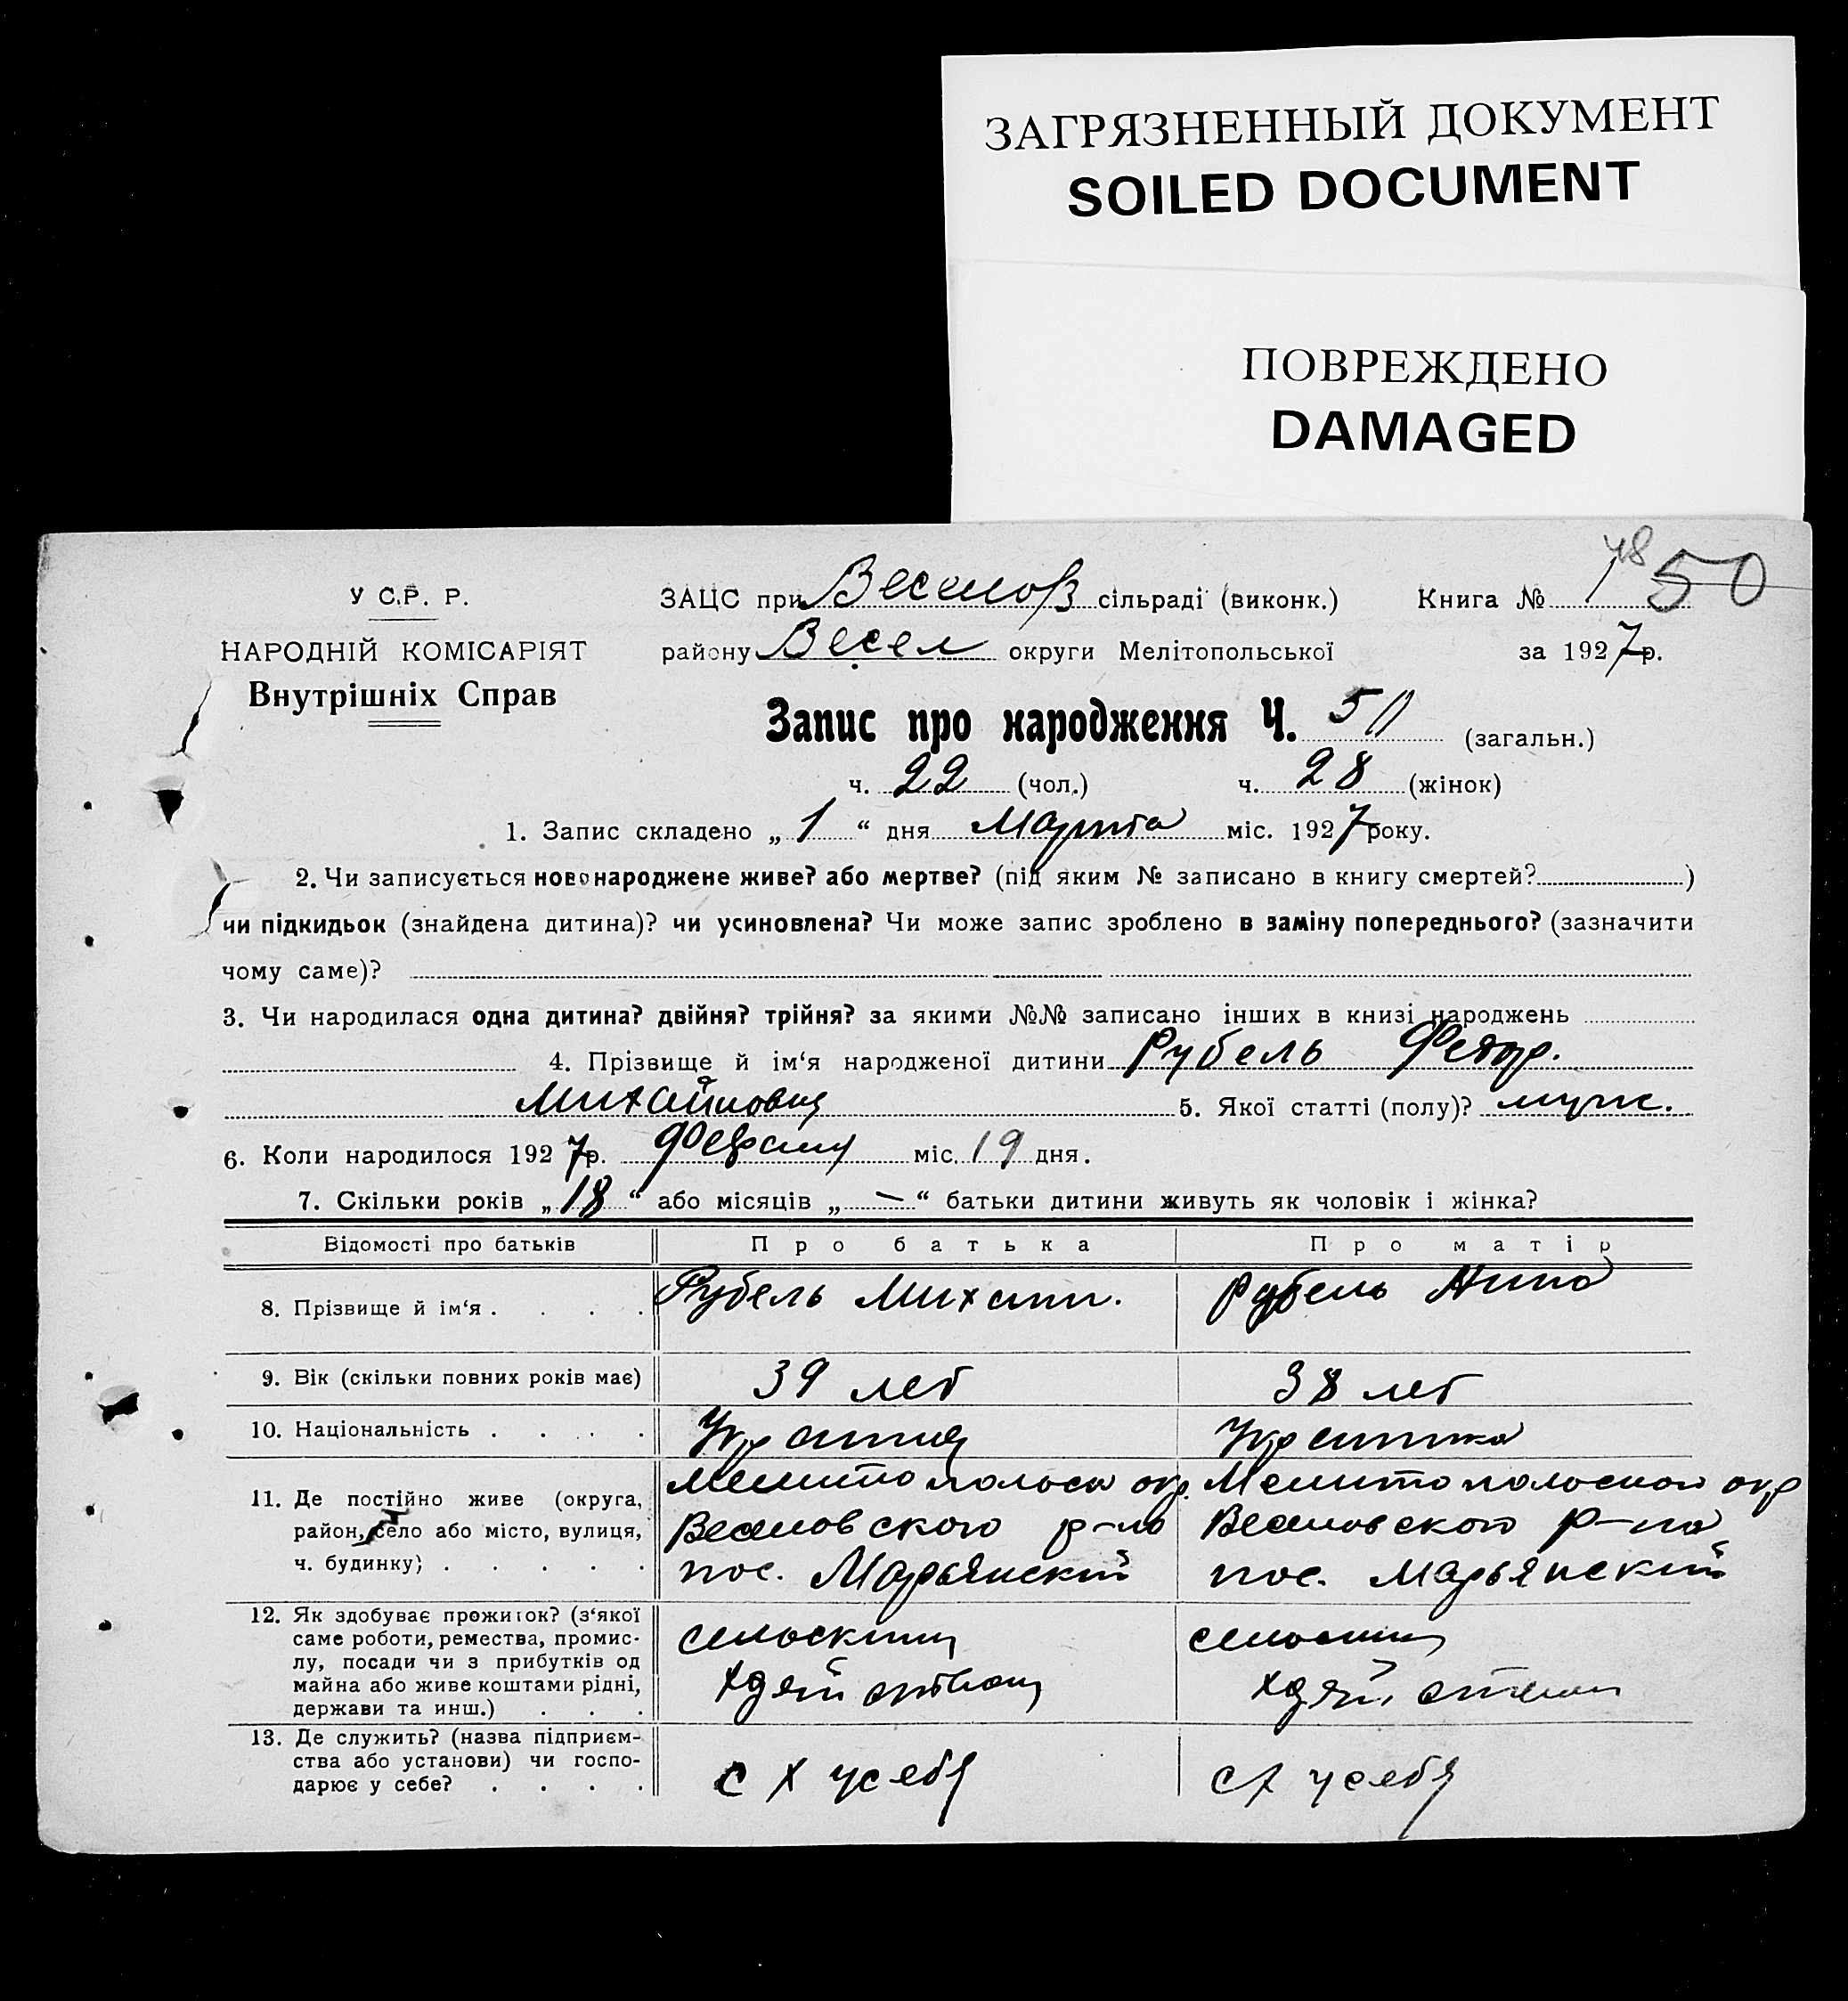 ЗАГРЯЗНЕННЫЙ ДОКУМЕНТ
SOILED DOCUMENT
ПОВРЕЖДЕНО
DAMAGED
48 50
У С.Р. Р.
ЗАЦС при Веселов сільраді (виконк.) Книга № 1
НАРОДНІЙ КОМІСАРІЯТ
району Весел округи Мелітопольської за 1927р.
Внутрішніх Справ
Запис про народження Ч. 50 (загальн.)
ч. 22 (чол.) ч. 28 (жінок)
1. Запис складено „ 1 “ дня Марта міс. 1927 року.
2. Чи записується новонароджене живе? або мертве? (під яким № записано в книгу смертей? )
чи підкидьок (знайдена дитина)? чи усиновлена? Чи може запис зроблено в заміну попереднього? (зазначити
чому саме)?
3. Чи народилася одна дитина? двійня? трійня? за якими №№ записано інших в книзі народжень
4. Прізвище й ім‘я народженої дитини Рубель Федор.
Михайлович 5. Якої статті (полу)? муж.
6. Коли народилося 1927р. міс. 19 дня.
7. Скільки років „ 18 “ або місяців „ — “ батьки дитини живуть як чоловік і жінка?
Відомості про батьків Про батька Про матір
8. Прізвище й ім‘я . . . . Рубель Михаил. Рубель Анна
9. Вік (скільки повних років має) 39 лет 38 лет
10. Національність . . . .
11. Де постійно живе (округа, район, село або місто, вулиця, ч. будинку) . . . . .
Мелитопольск окр. Мелитопольского окр
Веселовского р-на Веселовского р-на
пос. Марьянский пос. Марьянский
12. Як здобуває прожиток? (з‘якої
саме роботи, ремества, промис-
лу, посади чи з прибутків од
майна або живе коштами рідні,
держави та инш.) . . .
13. Де служить? (назва підприєм-
ства або установи) чи госпо-
дарює у себе? . . . .
с х у себя с х у себя